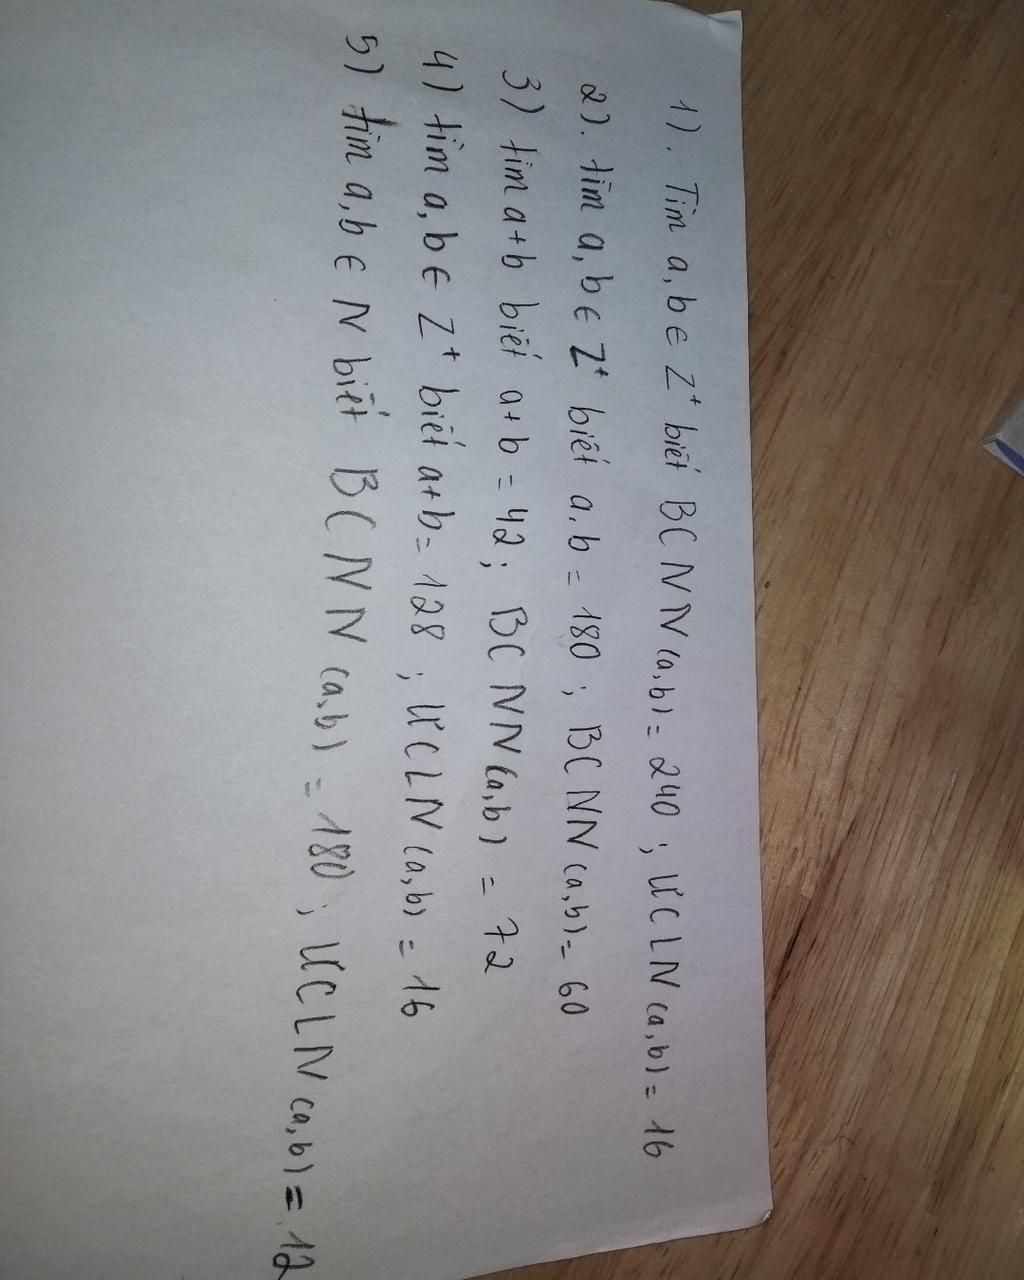 1). Tìm a,b ∈ Z⁺ biết BCNN(a,b) = 240 ; ƯCLN(a,b) = 16
2). tìm a,b ∈ Z⁺ biết a.b = 180 ; BCNN(a,b) = 60
3) tìm a+b biết a+b = 42 ; BCNN(a,b) = 72
4) tìm a,b ∈ Z⁺ biết a+b = 128 ; ƯCLN(a,b) = 16
5) tìm a,b ∈ N biết BCNN(a,b) = 180 ; ƯCLN(a,b) = 12